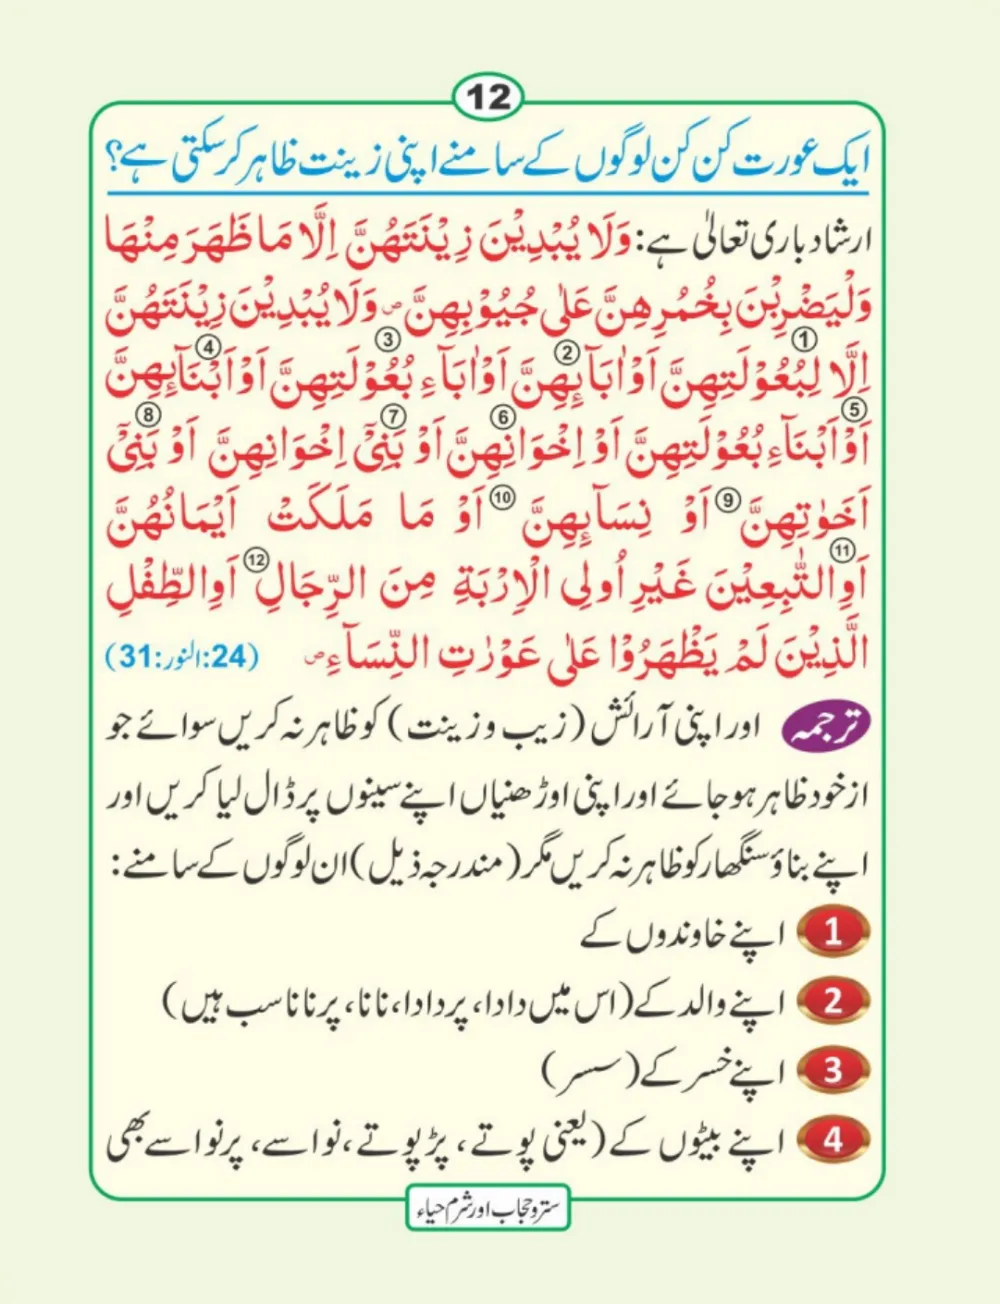 12
ایک عورت کن کن لوگوں کے سامنے اپنی زینت ظاہر کرسکتی ہے؟
ارشاد باری تعالیٰ ہے: وَلَا يُبْدِيْنَ زِيْنَتَهُنَّ اِلَّا مَا ظَهَرَ مِنْهَا
وَلْيَضْرِبْنَ بِخُمُرِهِنَّ عَلٰى جُيُوْبِهِنَّ ص وَلَا يُبْدِيْنَ زِيْنَتَهُنَّ
اِلَّا لِبُعُوْلَتِهِنَّ ① اَوْ اٰبَآئِهِنَّ ② اَوْ اٰبَآءِ بُعُوْلَتِهِنَّ ③ اَوْ اَبْنَآئِهِنَّ ④
اَوْ اَبْنَآءِ بُعُوْلَتِهِنَّ ⑤ اَوْ اِخْوَانِهِنَّ ⑥ اَوْ بَنِیْۤ اِخْوَانِهِنَّ ⑦ اَوْ بَنِیْۤ ⑧
اَخَوٰتِهِنَّ ⑨ اَوْ نِسَآئِهِنَّ ⑩ اَوْ مَا مَلَكَتْ اَيْمَانُهُنَّ
اَوِ التّٰبِعِيْنَ ⑪ غَيْرِ اُولِى الْاِرْبَةِ مِنَ الرِّجَالِ ⑫ اَوِ الطِّفْلِ
الَّذِيْنَ لَمْ يَظْهَرُوْا عَلٰى عَوْرٰتِ النِّسَآءِ ص (24:النور:31)
ترجمہ اور اپنی آرائش (زیب وزینت) کو ظاہر نہ کریں سوائے جو
ازخود ظاہر ہوجائے اور اپنی اوڑھنیاں اپنے سینوں پر ڈال لیا کریں اور
اپنے بناؤ سنگھار کو ظاہر نہ کریں مگر (مندرجہ ذیل) ان لوگوں کے سامنے:
1 اپنے خاوندوں کے
2 اپنے والد کے (اس میں دادا، پردادا، نانا، پرنانا سب ہیں)
3 اپنے خسر کے (سسر)
4 اپنے بیٹوں کے (یعنی پوتے، پڑپوتے، نواسے، پرنواسے بھی
ستر وحجاب اور شرم حیاء